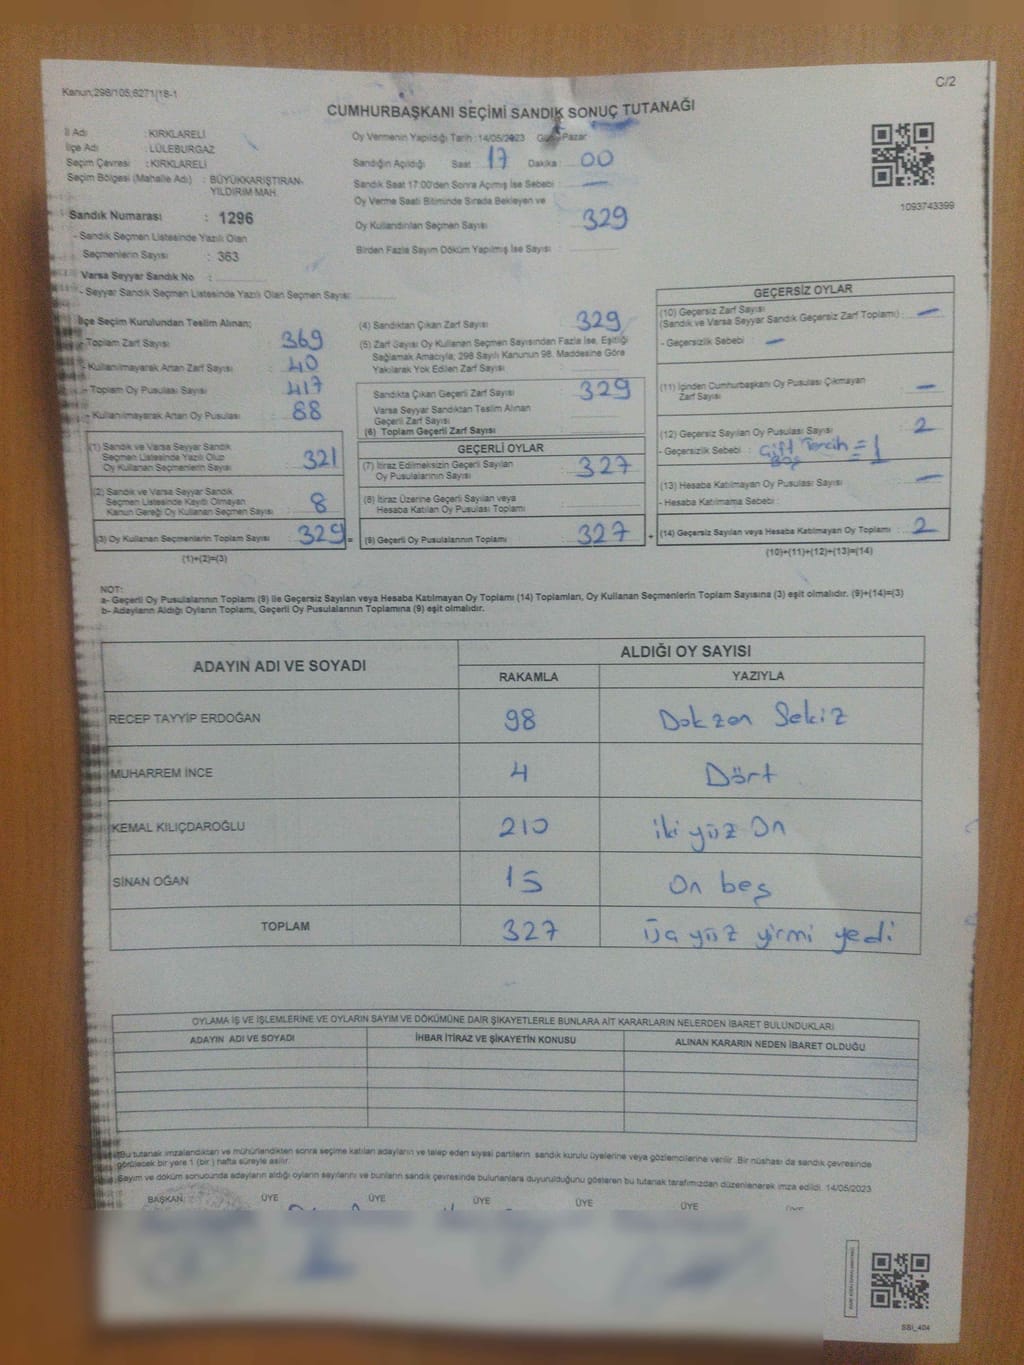 Kanun,298/105,6271/18-1
C/2
CUMHURBAŞKANI SEÇİMİ SANDIK SONUÇ TUTANAĞI
İl Adı : KIRKLARELİ
İlçe Adı : LÜLEBURGAZ
Seçim Çevresi : KIRKLARELİ
Seçim Bölgesi (Mahalle Adı) : BÜYÜKKARIŞTIRAN-
YILDIRIM MAH.
Sandık Numarası : 1296
- Sandık Seçmen Listesinde Yazılı Olan
Seçmenlerin Sayısı : 363
Varsa Seyyar Sandık No :
- Seyyar Sandık Seçmen Listesinde Yazılı Olan Seçmen Sayısı:
Oy Vermenin Yapıldığı Tarih :14/05/2023 Günü Pazar
Sandığın Açıldığı Saat 17 Dakika : 00
Sandık Saat 17:00'den Sonra Açılmış İse Sebebi : —
Oy Verme Saati Bitiminde Sırada Bekleyen ve
Oy Kullandırılan Seçmen Sayısı : 329
Birden Fazla Sayım Döküm Yapılmış İse Sayısı :
1093743399
İlçe Seçim Kurulundan Teslim Alınan;
- Toplam Zarf Sayısı : 369
- Kullanılmayarak Artan Zarf Sayısı : 40
- Toplam Oy Pusulası Sayısı : 417
- Kullanılmayarak Artan Oy Pusulası : 88
(1) Sandık ve Varsa Seyyar Sandık
Seçmen Listesinde Yazılı Olup
Oy Kullanan Seçmenlerin Sayısı : 321
(2) Sandık ve Varsa Seyyar Sandık
Seçmen Listesinde Kayıtlı Olmayan
Kanun Gereği Oy Kullanan Seçmen Sayısı : 8
(3) Oy Kullanan Seçmenlerin Toplam Sayısı : 329 =
(1)+(2)=(3)
(4) Sandıktan Çıkan Zarf Sayısı : 329
(5) Zarf Sayısı Oy Kullanan Seçmen Sayısından Fazla İse, Eşitliği
Sağlamak Amacıyla; 298 Sayılı Kanunun 98. Maddesine Göre
Yakılarak Yok Edilen Zarf Sayısı :
Sandıkta Çıkan Geçerli Zarf Sayısı : 329
Varsa Seyyar Sandıktan Teslim Alınan
Geçerli Zarf Sayısı :
(6) Toplam Geçerli Zarf Sayısı :
GEÇERLİ OYLAR
(7) İtiraz Edilmeksizin Geçerli Sayılan
Oy Pusulalarının Sayısı : 327
(8) İtiraz Üzerine Geçerli Sayılan veya
Hesaba Katılan Oy Pusulası Toplamı :
(9) Geçerli Oy Pusulalarının Toplamı : 327 +
GEÇERSİZ OYLAR
(10) Geçersiz Zarf Sayısı
(Sandık ve Varsa Seyyar Sandık Geçersiz Zarf Toplamı) : —
- Geçersizlik Sebebi : —
(11) İçinden Cumhurbaşkanı Oy Pusulası Çıkmayan
Zarf Sayısı : —
(12) Geçersiz Sayılan Oy Pusulası Sayısı : 2
- Geçersizlik Sebebi : Çift Tercih = 1
Boş
(13) Hesaba Katılmayan Oy Pusulası Sayısı : —
- Hesaba Katılmama Sebebi :
(14) Geçersiz Sayılan veya Hesaba Katılmayan Oy Toplamı : 2
(10)+(11)+(12)+(13)=(14)
NOT:
a- Geçerli Oy Pusulalarının Toplamı (9) ile Geçersiz Sayılan veya Hesaba Katılmayan Oy Toplamı (14) Toplamları, Oy Kullanan Seçmenlerin Toplam Sayısına (3) eşit olmalıdır. (9)+(14)=(3)
b- Adayların Aldığı Oyların Toplamı, Geçerli Oy Pusulalarının Toplamına (9) eşit olmalıdır.
ADAYIN ADI VE SOYADI
ALDIĞI OY SAYISI
RAKAMLA YAZIYLA
RECEP TAYYİP ERDOĞAN 98 Dokzan Sekiz
MUHARREM İNCE 4 Dört
KEMAL KILIÇDAROĞLU 210 iki yüz On
SİNAN OĞAN 15 On beş
TOPLAM 327 Üç yüz yirmi yedi
OYLAMA İŞ VE İŞLEMLERİNE VE OYLARIN SAYIM VE DÖKÜMÜNE DAİR ŞİKAYETLERLE BUNLARA AİT KARARLARIN NELERDEN İBARET BULUNDUKLARI
ADAYIN ADI VE SOYADI İHBAR İTİRAZ VE ŞİKAYETİN KONUSU ALINAN KARARIN NEDEN İBARET OLDUĞU
Bu tutanak imzalandıktan ve mühürlendikten sonra seçime katılan adayların ve talep eden siyasi partilerin sandık kurulu üyelerine veya gözlemcilerine verilir. Bir nüshası da sandık çevresinde
görülecek bir yere 1 (bir ) hafta süreyle asılır.
Sayım ve döküm sonucunda adayların aldığı oyların sayılarını ve bunların sandık çevresinde bulunanlara duyurulduğunu gösteren bu tutanak tarafımızdan düzenlenerek imza edildi. 14/05/2023
BAŞKAN ÜYE ÜYE ÜYE ÜYE ÜYE ÜYE
SSI_404